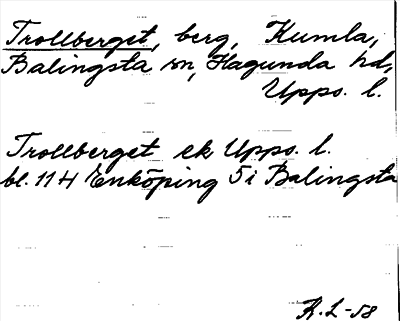 Trollberget, berg, Kumla,
Balingsta sn, Hagunda hd,
Upps. l.
Trollberget ek Upps. l.
bl. 114 Enköping 5i Balingsta
R.L-58